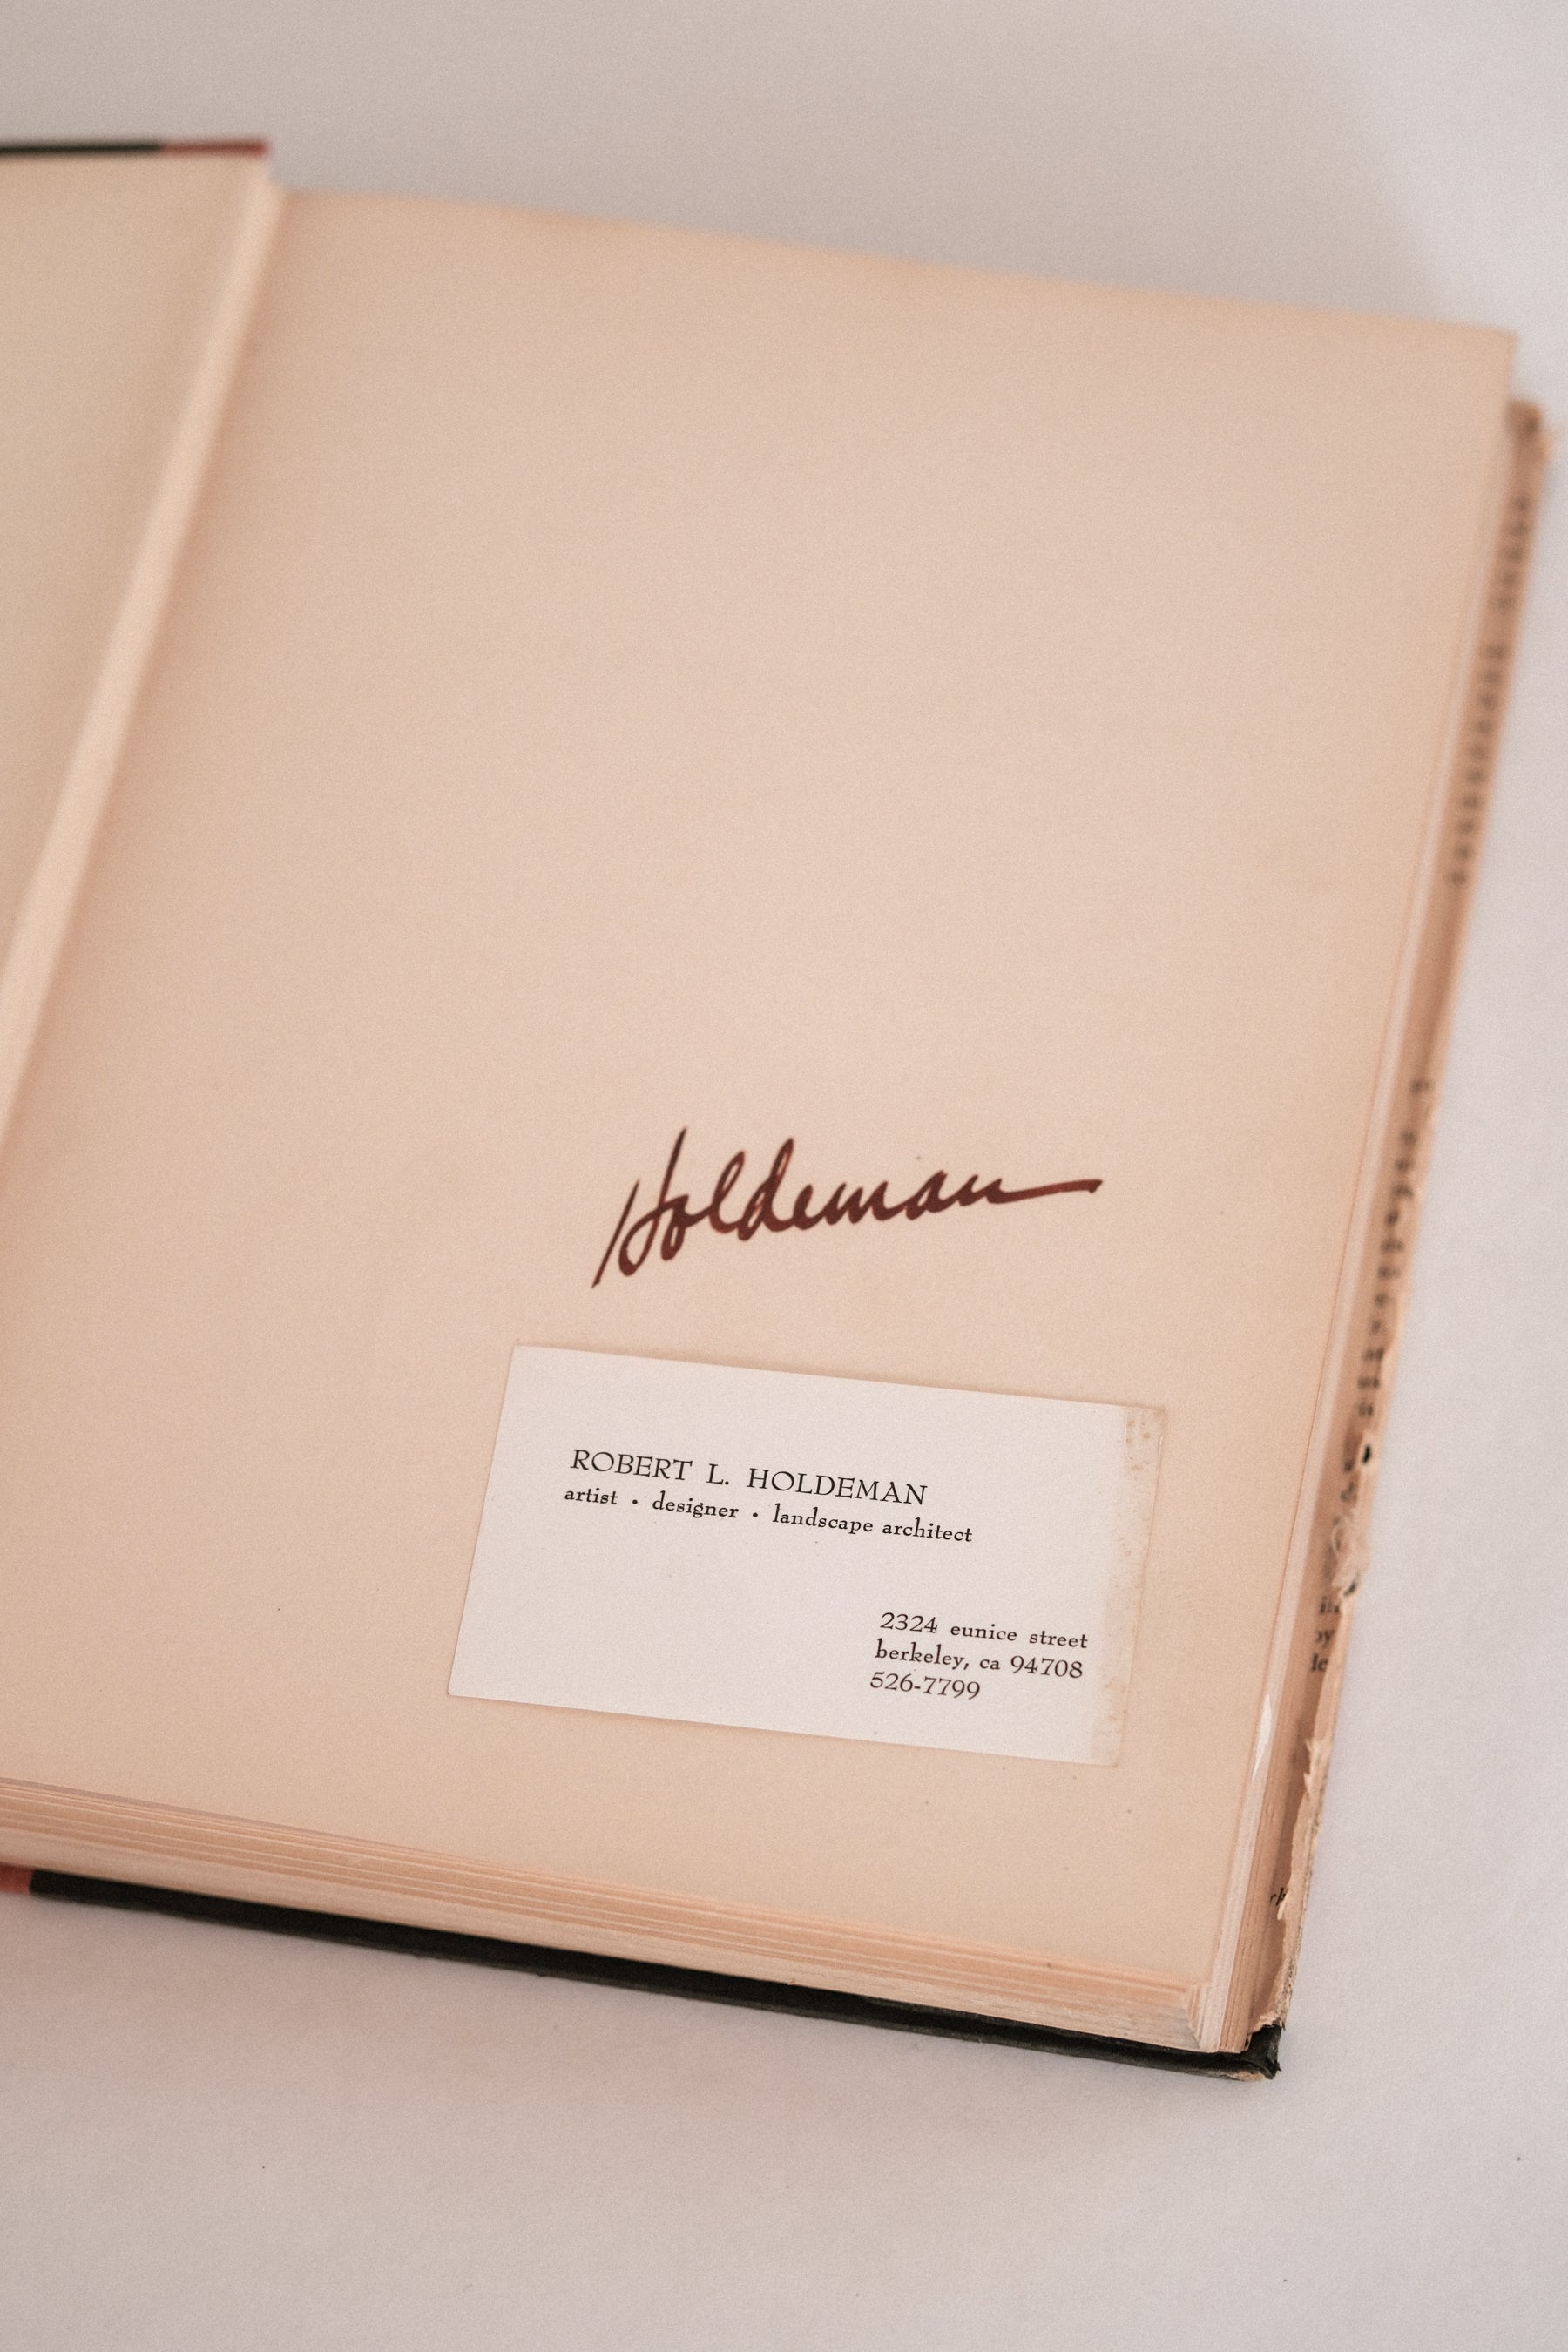 Holdeman
ROBERT L. HOLDEMAN
artist • designer • landscape architect
2324 eunice street
berkeley, ca 94708
526-7799